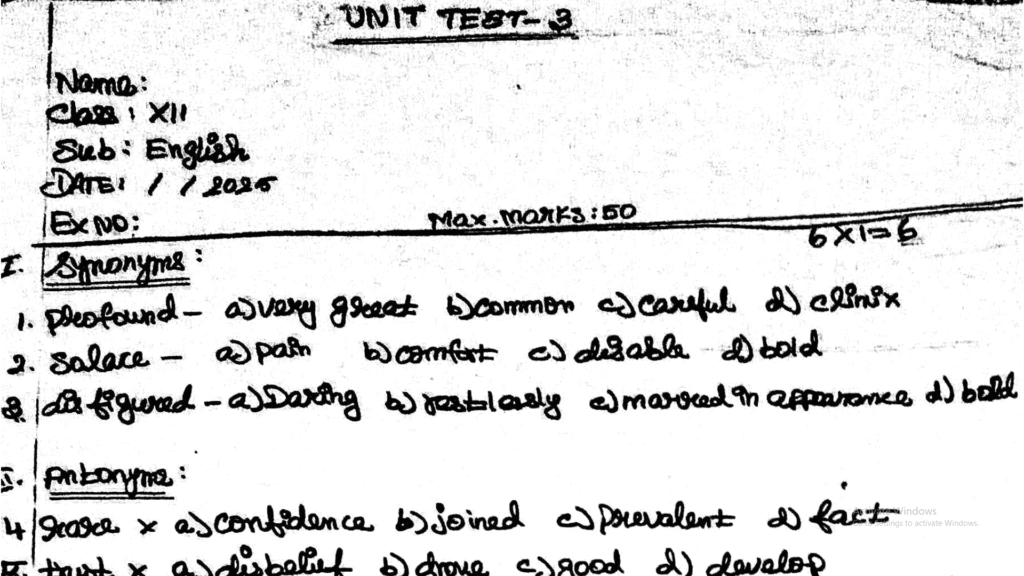 UNIT TEST-3
Name:
Class: XII
Sub: English
DATE: / / 2025
EX NO: Max.Marks:50
6X1=6
I. Synonyms:
1. profound- a) very great b) common c) careful d) climix
2. Salace - a) pain b) comfort c) disable d) bold
3. disfigured - a) Daring b) restlessly c) marred in appearance d) bold
II. Antonyms:
4 rare x a) confidence b) joined c) prevalent d) fact
trust x a) disbelief b) drove c) good d) develop